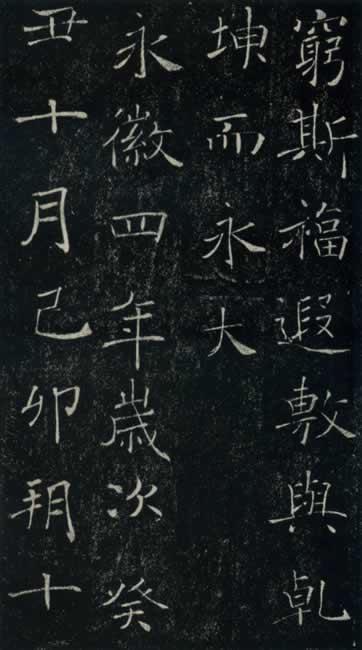 窮斯福遐敷與乹
坤而永大
永徽四年歲次癸
丑十月己卯朔十